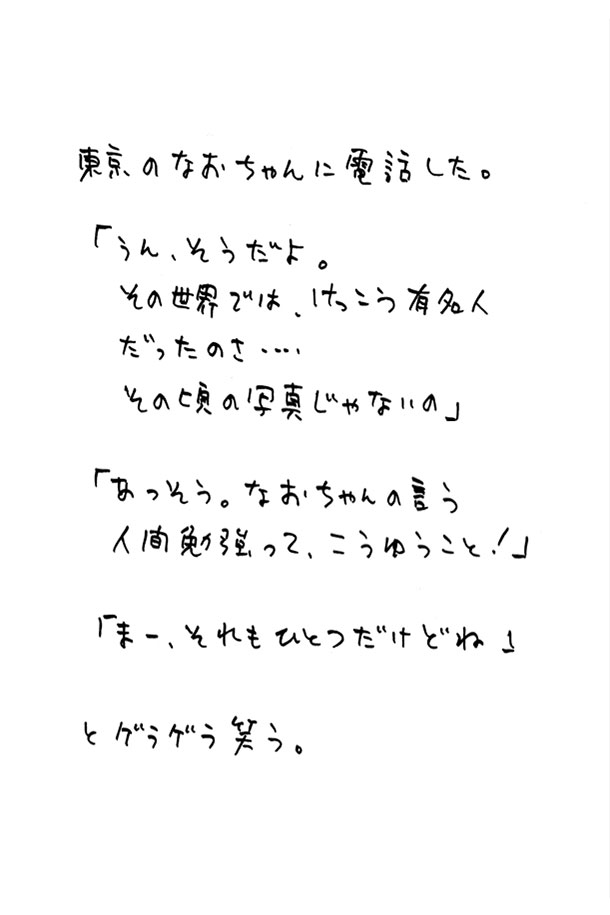 東京のなおちゃんに電話した。
「うん、そうだよ。
その世界では、けっこう有名人
だったのさ‥‥
その頃の写真じゃないの」
「あっそう。なおちゃんの言う
人間勉強って、こうゆうこと!」
「まー、それもひとつだけどね」
とゲラゲラ笑う。